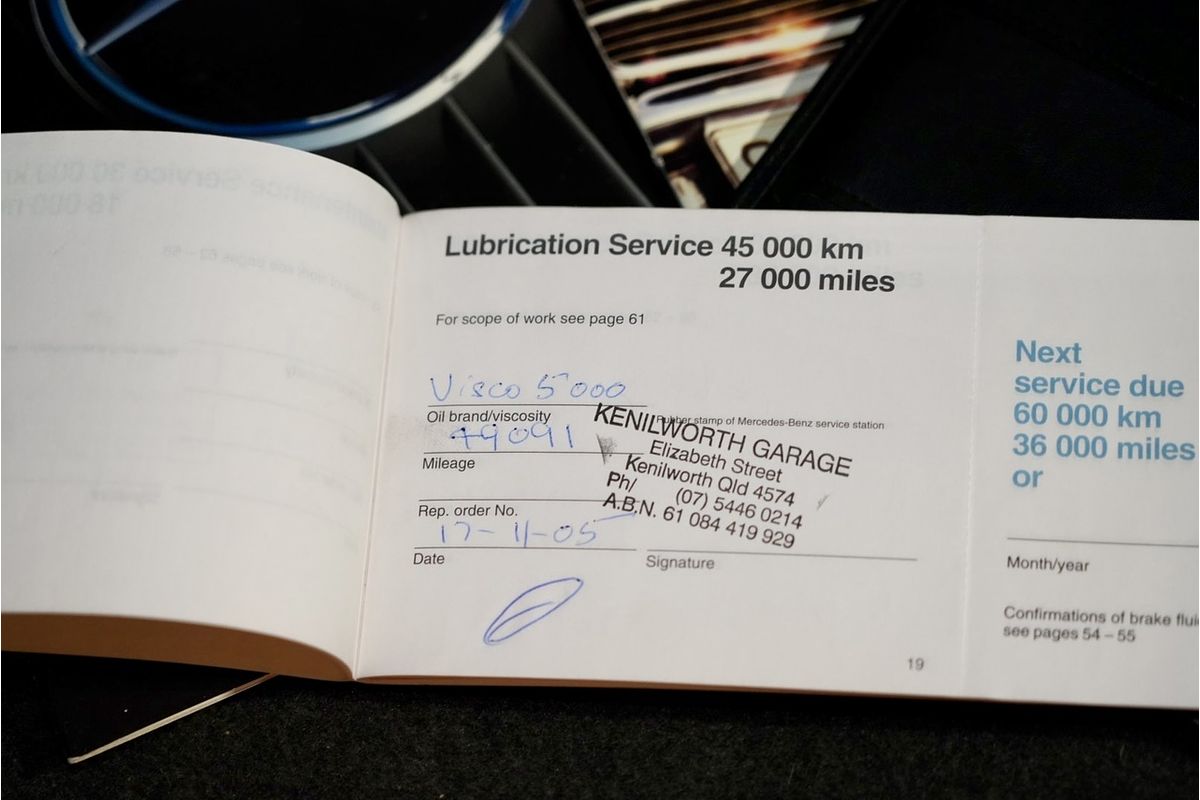 Lubrication Service 45 000 km
27 000 miles
For scope of work see page 61
Visco 5000
Oil brand/viscosity
Rubber stamp of Mercedes-Benz service station
79091
Mileage
Rep. order No.
17-11-05
Date
KENILWORTH GARAGE
Elizabeth Street
Kenilworth Qld 4574
Ph/ (07) 5446 0214
A.B.N. 61 084 419 929
Signature
19
Next
service due
60 000 km
36 000 miles
or
Month/year
Confirmations of brake
see pages 54 – 55